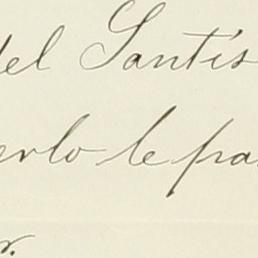 del Santís
erlo le pa
r.